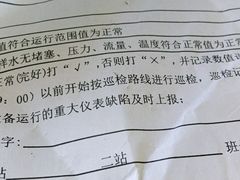 值符合运行范围值为正常
样水无堵塞、压力、流量、温度符合正常值为正
正常(完好)打“√”,否则打“×”,并记录数值
9:00)以前开始按巡检路线进行巡检,巡检
设备运行的重大仪表缺陷及时上报;
字:
二站